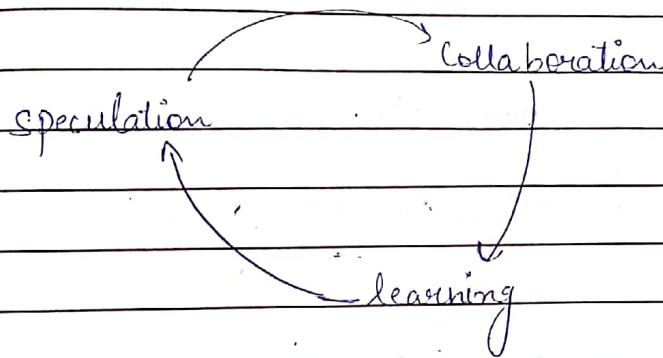 Collaboration
speculation
learning